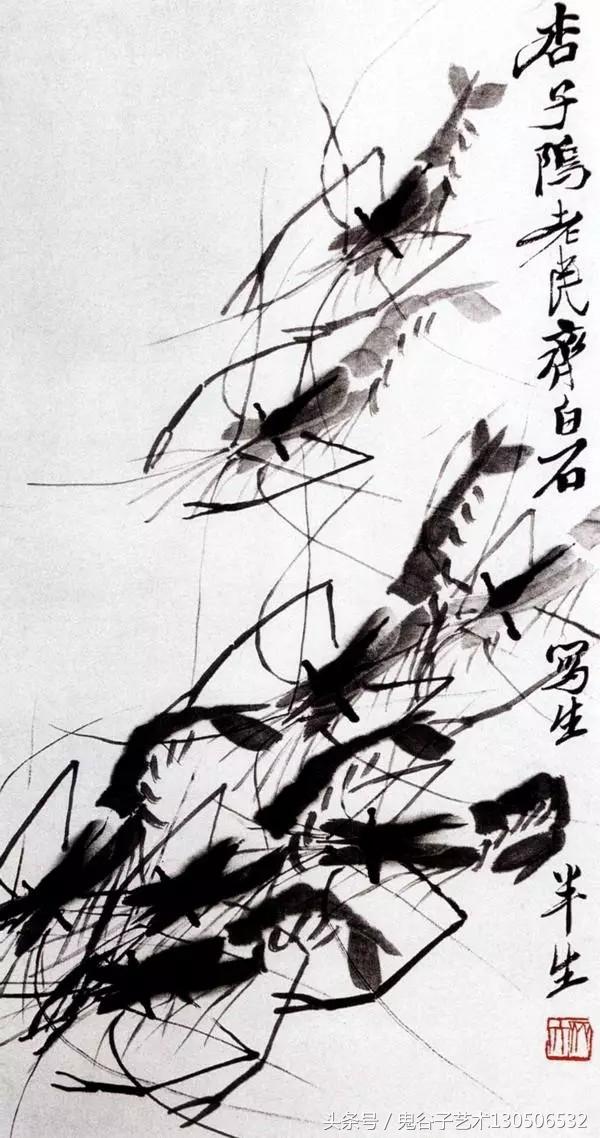 杏子隖老民齊白石写生半生
头条号 / 鬼谷子艺术130506532